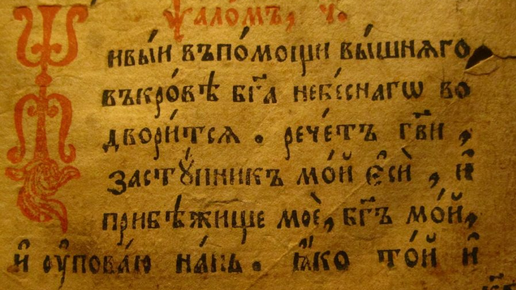 Ѱало́мъ, ч҃.
Живы́й въпо́мощи вы́шняго
въкро́вѣ бг҃а небе́снагѡ во
двори́тся. рече́тъ гв҃и,
засту́пникъ мо́й є҆сѝ, и҆
прибѣ́жище моѐ, бг҃ъ мо́й,
и҆ ᲂу҆пова́ю на́нь. ꙗ҆́ко то́й и҆